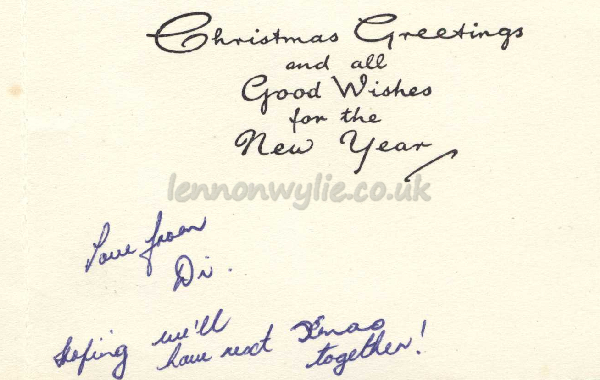 Christmas Greetings
and all
Good Wishes
for the
New Year
lennonwylie.co.uk
Love from
Di.
Hoping we'll
have next Xmas
together!